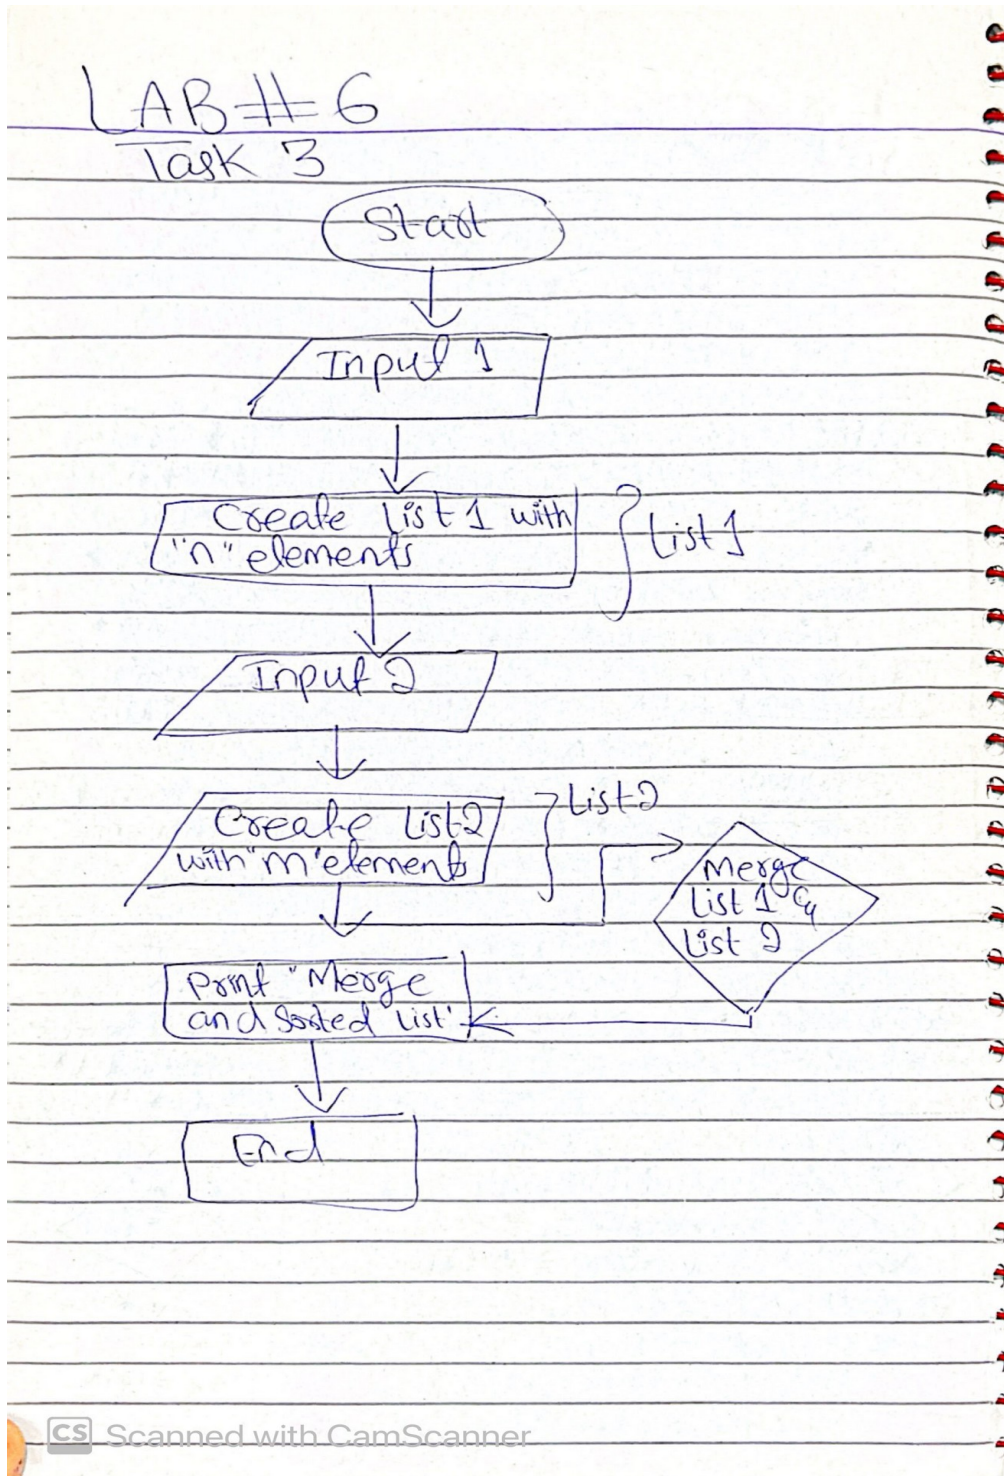 LAB # 6
Task 3
Start
Input 1
Create List 1 with
"n" elements
List 1
Input 2
Create List 2
with "m" elements
List 2
Merge
List 1 &
List 2
Print "Merge
and Sorted List"
End
CS Scanned with CamScanner